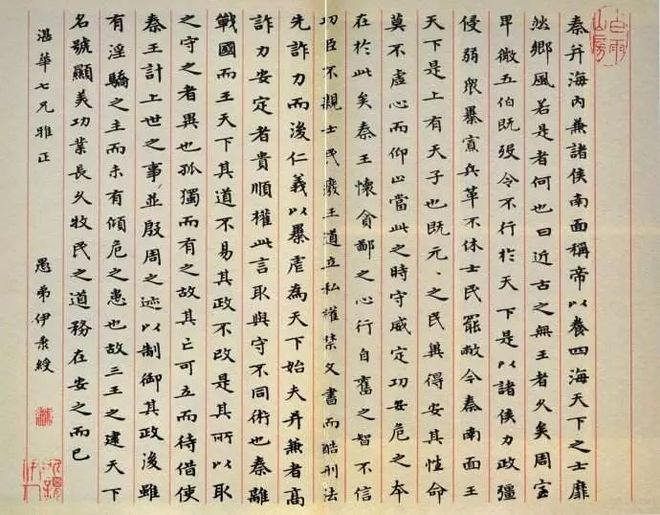 秦并海內兼諸侯南面稱帝以養四海天下之士靡
然鄉風若是者何也曰近古之無王者久矣周室
卑微五伯既歿令不行於天下是以諸侯力政彊
侵弱眾暴寡兵革不休士民罷敝今秦南面王
天下是上有天子也既元〻之民冀得安其性命
莫不虛心而仰上當此之時守威定功安危之本
在於此矣秦王懷貪鄙之心行自奮之智不信
功臣不親士民廢王道立私權禁文書而酷刑法
先詐力而後仁義以暴虐為天下始夫并兼者高
詐力安定者貴順權此言取與守不同術也秦離
戰國而王天下其道不易其政不改是其所以取
之守之者異也孤獨而有之故其亡可立而待借使
秦王計上世之事並殷周之迹以制御其政後雖
有淫驕之主而未有傾危之患也故三王之建天下
名號顯美功業長久牧民之道務在安之而已
湛華七兄雅正 愚弟伊秉綬